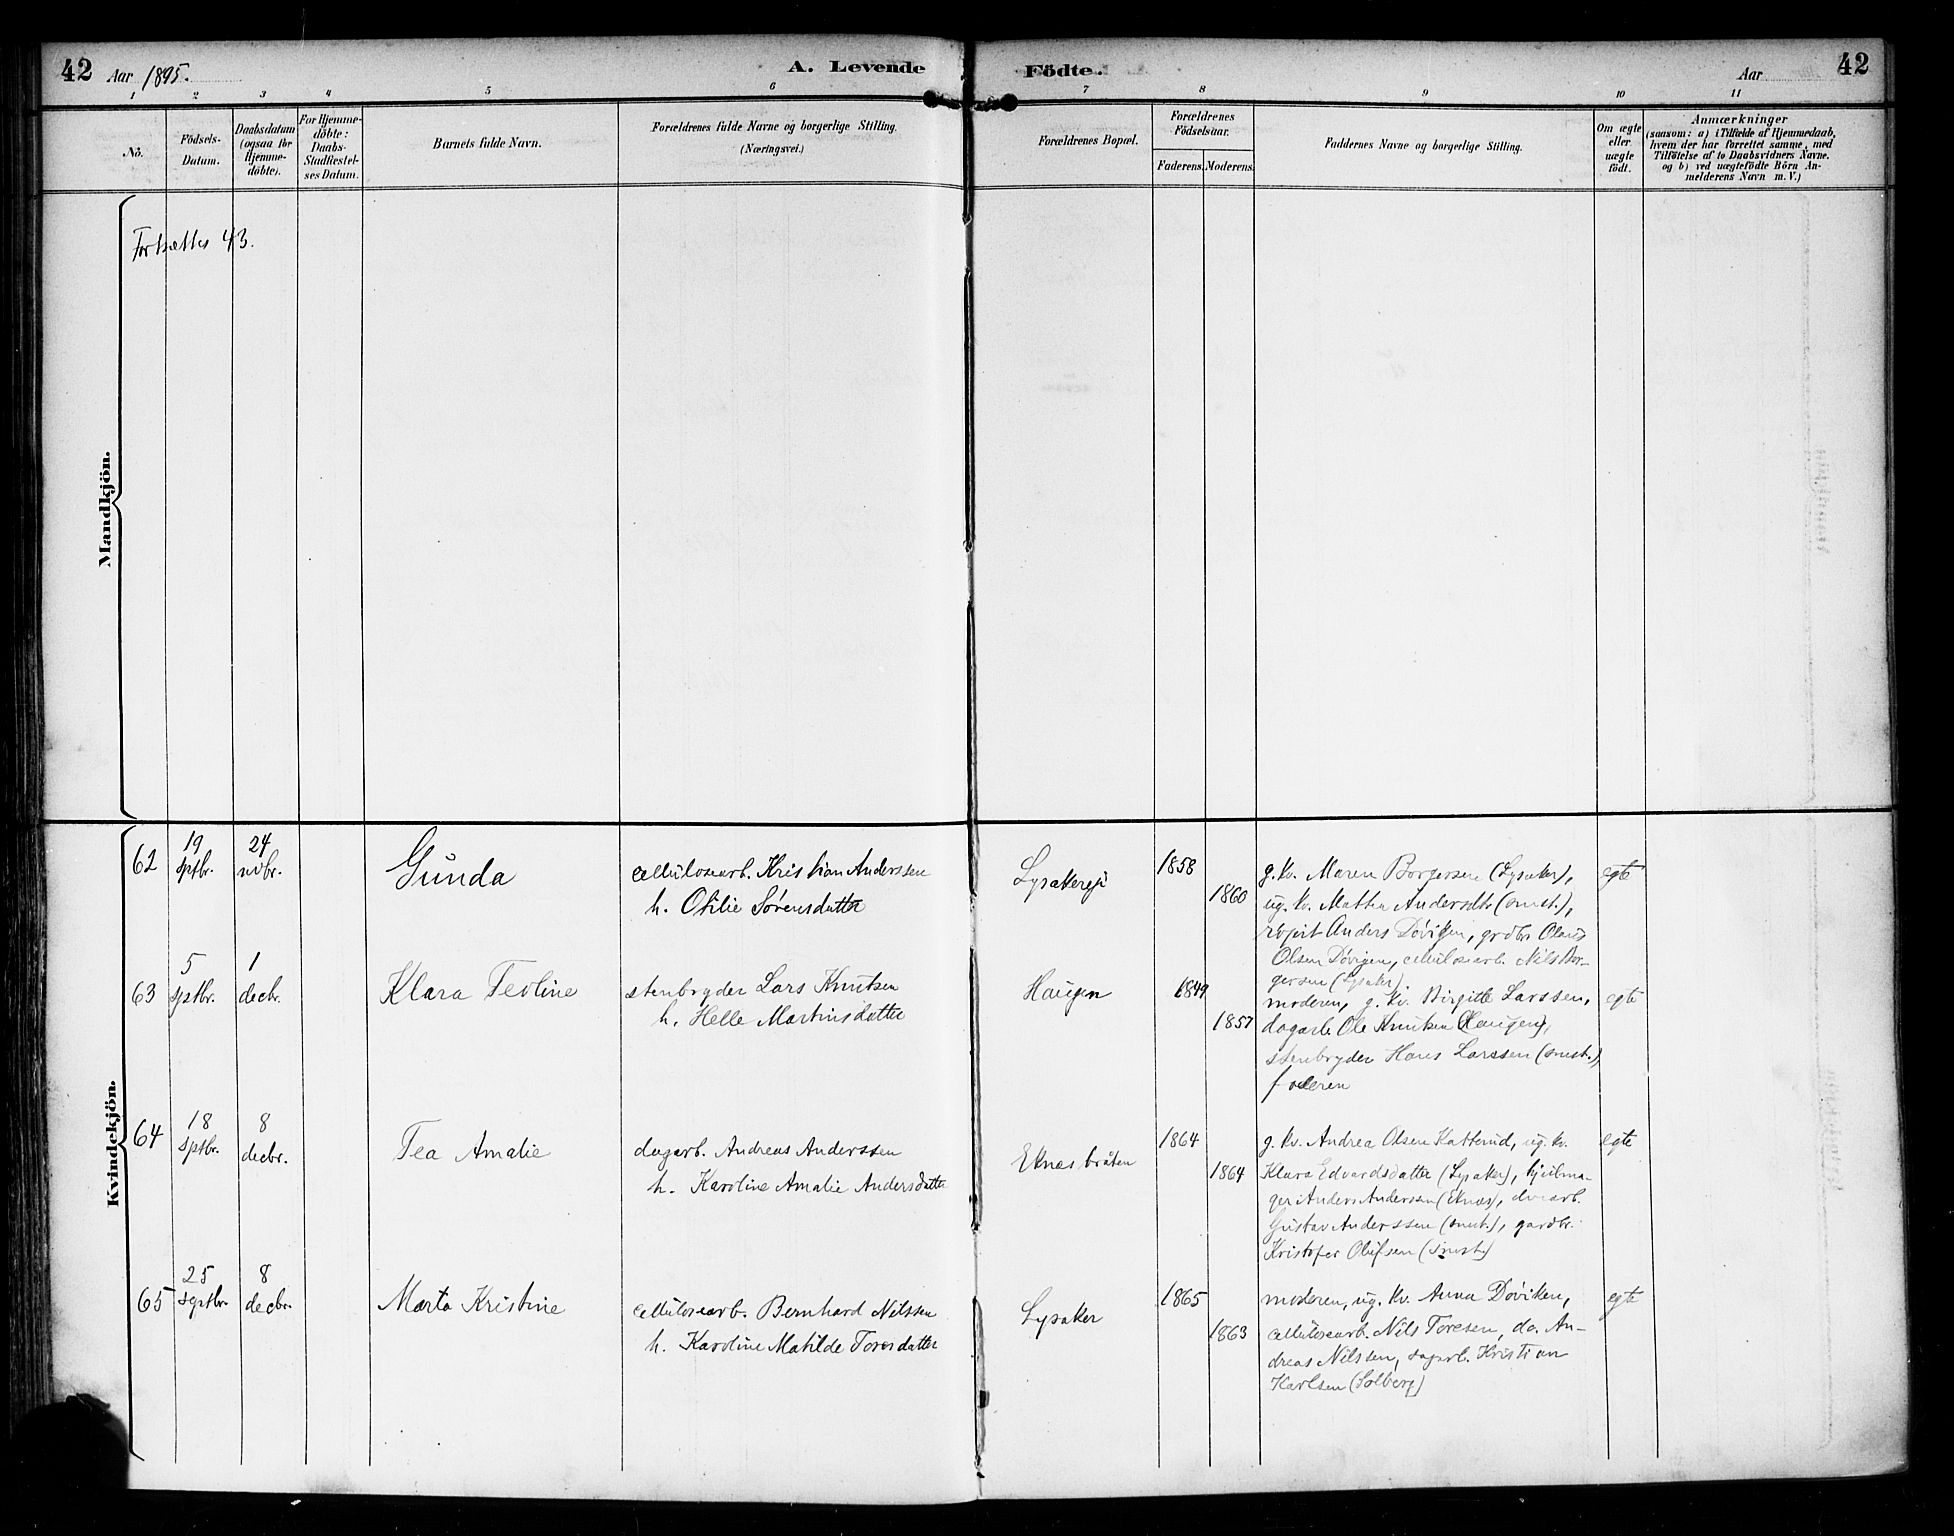 42 Aar 1895. A. Levende Födte. Aar 42
1 2 3 4 5 6 7 8 9 10 11
No.
Födsels-
Datum.
Daabsdatum
(ogsaa for
Hjemme-
döbte).
For Hjemme-
döbte:
Daabs-
Stadfæstel-
ses Datum.
Barnets fulde Navn.
Forældrenes fulde Navne og borgerlige Stilling.
(Næringsvei.)
Forældrenes Bopæl.
Forældrenes
Födselsaar.
Faderens. Moderens.
Faddernes Navne og borgerlige Stilling.
Om ægte
eller
uægte
födt.
Anmærkninger
(saasom: a) i Tilfælde af Hjemmedaab,
hvem der har forrettet samme, med
Tilföielse af to Daabsvidners Navne.
og b) ved uægtefödte Börn An-
melderens Navn m. V.)
Mandkjön.
Fortsættes 43.
Kvindekjön.
62
19
sptbr.
24
novbr.
Gunda
cellulosearb. Kristian Anderssen
h. Otilie Sørensdatter
Lysakerejé
1858
1860
g. kv. Maren Borgersen (Lysaker),
ug. kv. Mathea Andersdtr (smst.),
Anders Døviken, grdbr Olaus
Olsen Døvigen, cellulosearb. Nils Bor-
gersen (Lysaker)
egte
63
5
sptbr.
1
decbr.
Klara Teoline
stenbryder Lars Knutsen
h. Helle Martinsdatter
Haugen
1849
1857
moderen, g. kv. Birgitte Larssen,
dagarb. Ole Knutsen (Haugen),
stenbryder Hans Larssen (smst.),
faderen
egte
64
18
sptbr.
8
decbr.
Tea Amalie
dagarb. Andreas Anderssen
h. Karoline Amalie Andersdatter
Eknesbråten
1864
1864
g. kv. Andrea Olsen Katterud, ug. kv.
Klara Edvardsdatter (Lysaker), hjulma-
ger Anders Anderssen (Eknes),
Gustav Anderssen (smst.), gardbr.
Kristofer Olufsen (smst.)
egte
65
25
septbr.
8
decbr.
Marta Kristine
cellulosearb. Bernhard Nilssen
h. Karoline Matilde Toresdatter
Lysaker
1865
1863
moderen, ug. kv. Anna Døviken,
cellulosearb. Nils Toresen, do. An-
dreas Nilssen, dagarb. Kristian
Karlsen (Solberg)
egte